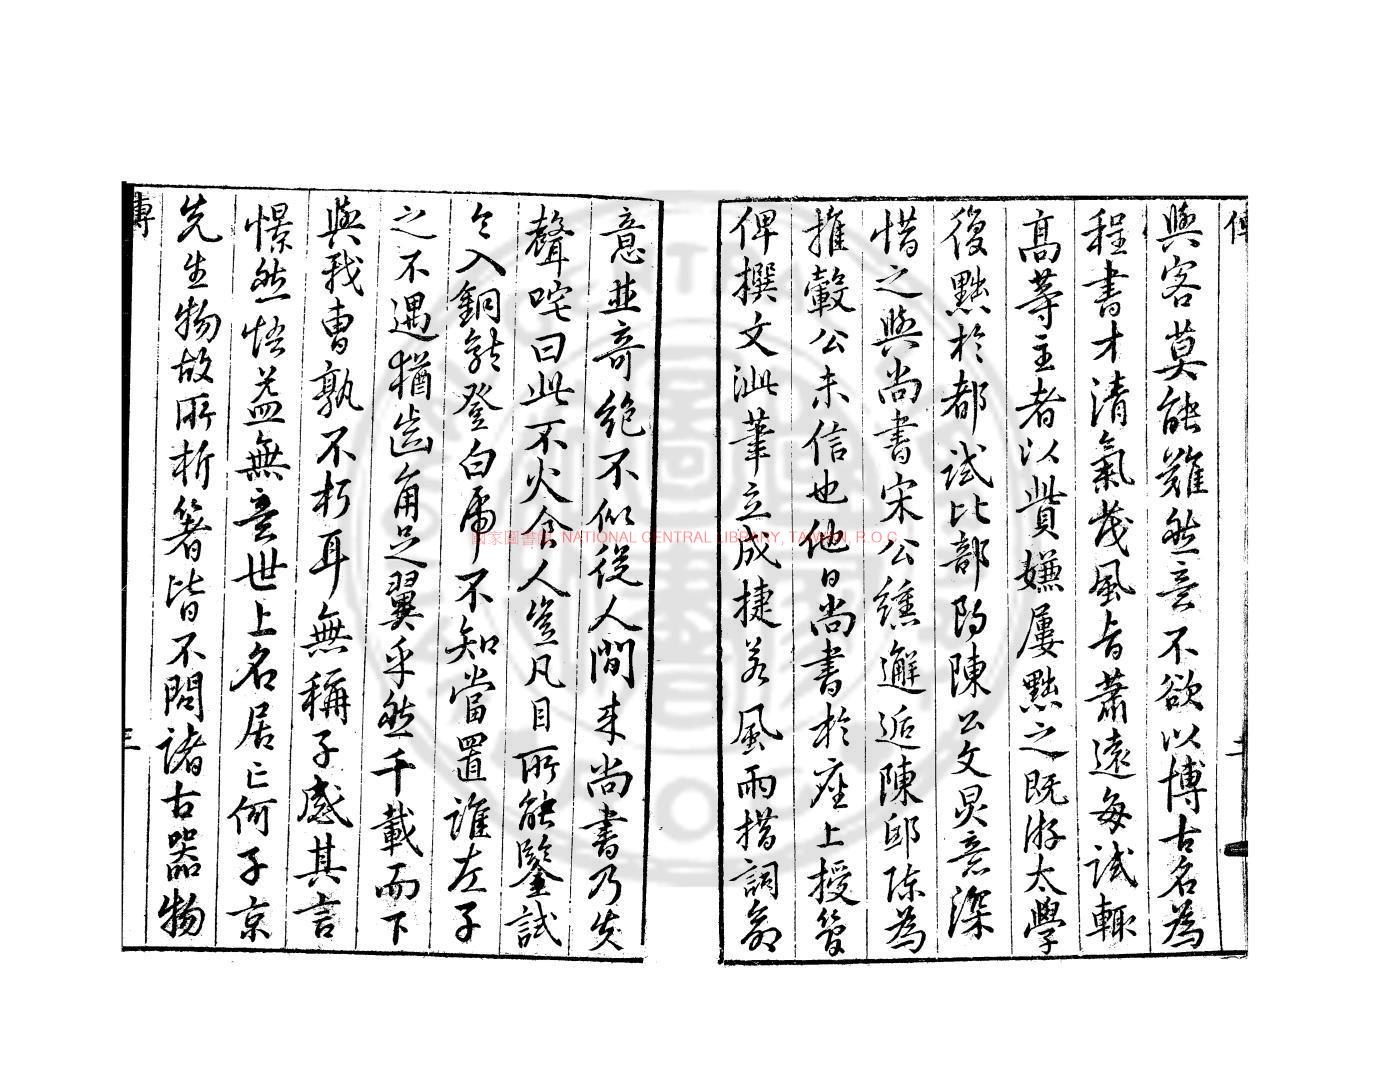 傳
二
與客莫能難然意不欲以博古名為
程書才清氣茂風旨蕭遠每試輒
高等主者以貲嫌屢黜之既游太學
復黜於都試比部郎陳公文炅意深
惜之與尚書宋公纁邂逅陳邸陳為
推轂公未信也他日尚書於座上授簡
俾撰文泚筆立成捷若風雨措詞命
意並奇絕不似從人間來尚書乃失
聲咤曰此不火食人豈凡目所能鑒試
令入銅龍登白虎不知當置誰左子
之不遇猶齒角足翼乎然千載而下
與我曹孰不朽耳無稱子感其言
憬然悟益無意世上名居亡何子京
先生物故所析箸皆不問諸古器物
傳
三
國家圖書館 NATIONAL CENTRAL LIBRARY, TAIWAN, R.O.C.